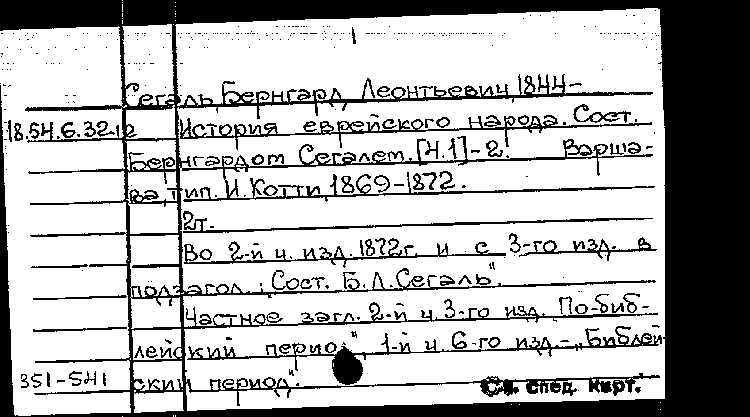 Сегаль, Бернгард Леонтьевич, 1844-
18.54.6.32 История еврейского народа. Сост.
Бернгардом Сегалем. [Ч.1]-2. Варша-
ва, тип. И. Котти, 1869-1872.
2т.
Во 2-й ч. изд. 1872г. и с 3-го изд. в
подзагол.: "Сост. Б.Л. Сегаль".
Частное загл. 2-й ч. 3-го изд. "По-биб-
лейский период", 1-й ч. 6-го изд. - "Библей-
351-541 ский период".
См. спед. карт.